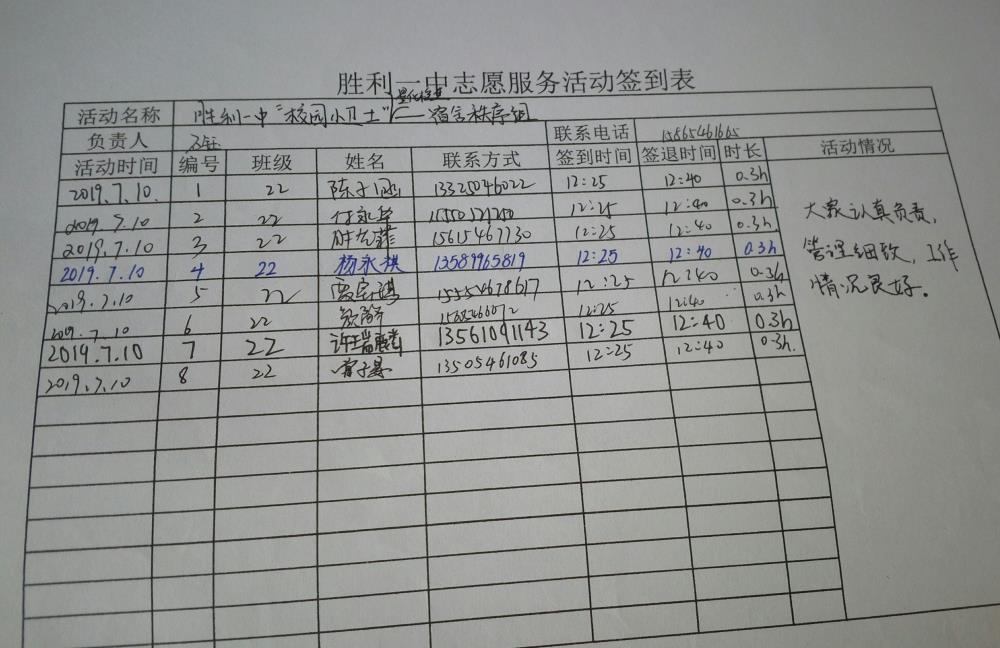 胜利一中志愿服务活动签到表
活动名称 胜利一中"校园小卫士" 量化检查 ——宿舍秩序组
负责人 联系电话 15865461665
活动时间 编号 班级 姓名 联系方式 签到时间 签退时间 时长 活动情况
2019.7.10. 1 22 陈子涵 13325046022 12:25 12:40 0.3h
2019.7.10 2 22 12:25 12:40 0.3h
2019.7.10 3 22 15615467730 12:25 12:40 0.3h
2019.7.10 4 22 杨永祺 13589965819 12:25 12:40 0.3h
2019.7.10 5 22 15554678617 12:25 12:40 0.3h
2019.7.10 6 22 12:25 12:40 0.3h
2019.7.10 7 22 13561091143 12:25 12:40 0.3h
2019.7.10 8 22 13505461085 12:25 12:40 0.3h.
大家认真负责,
管理细致,工作
情况良好。